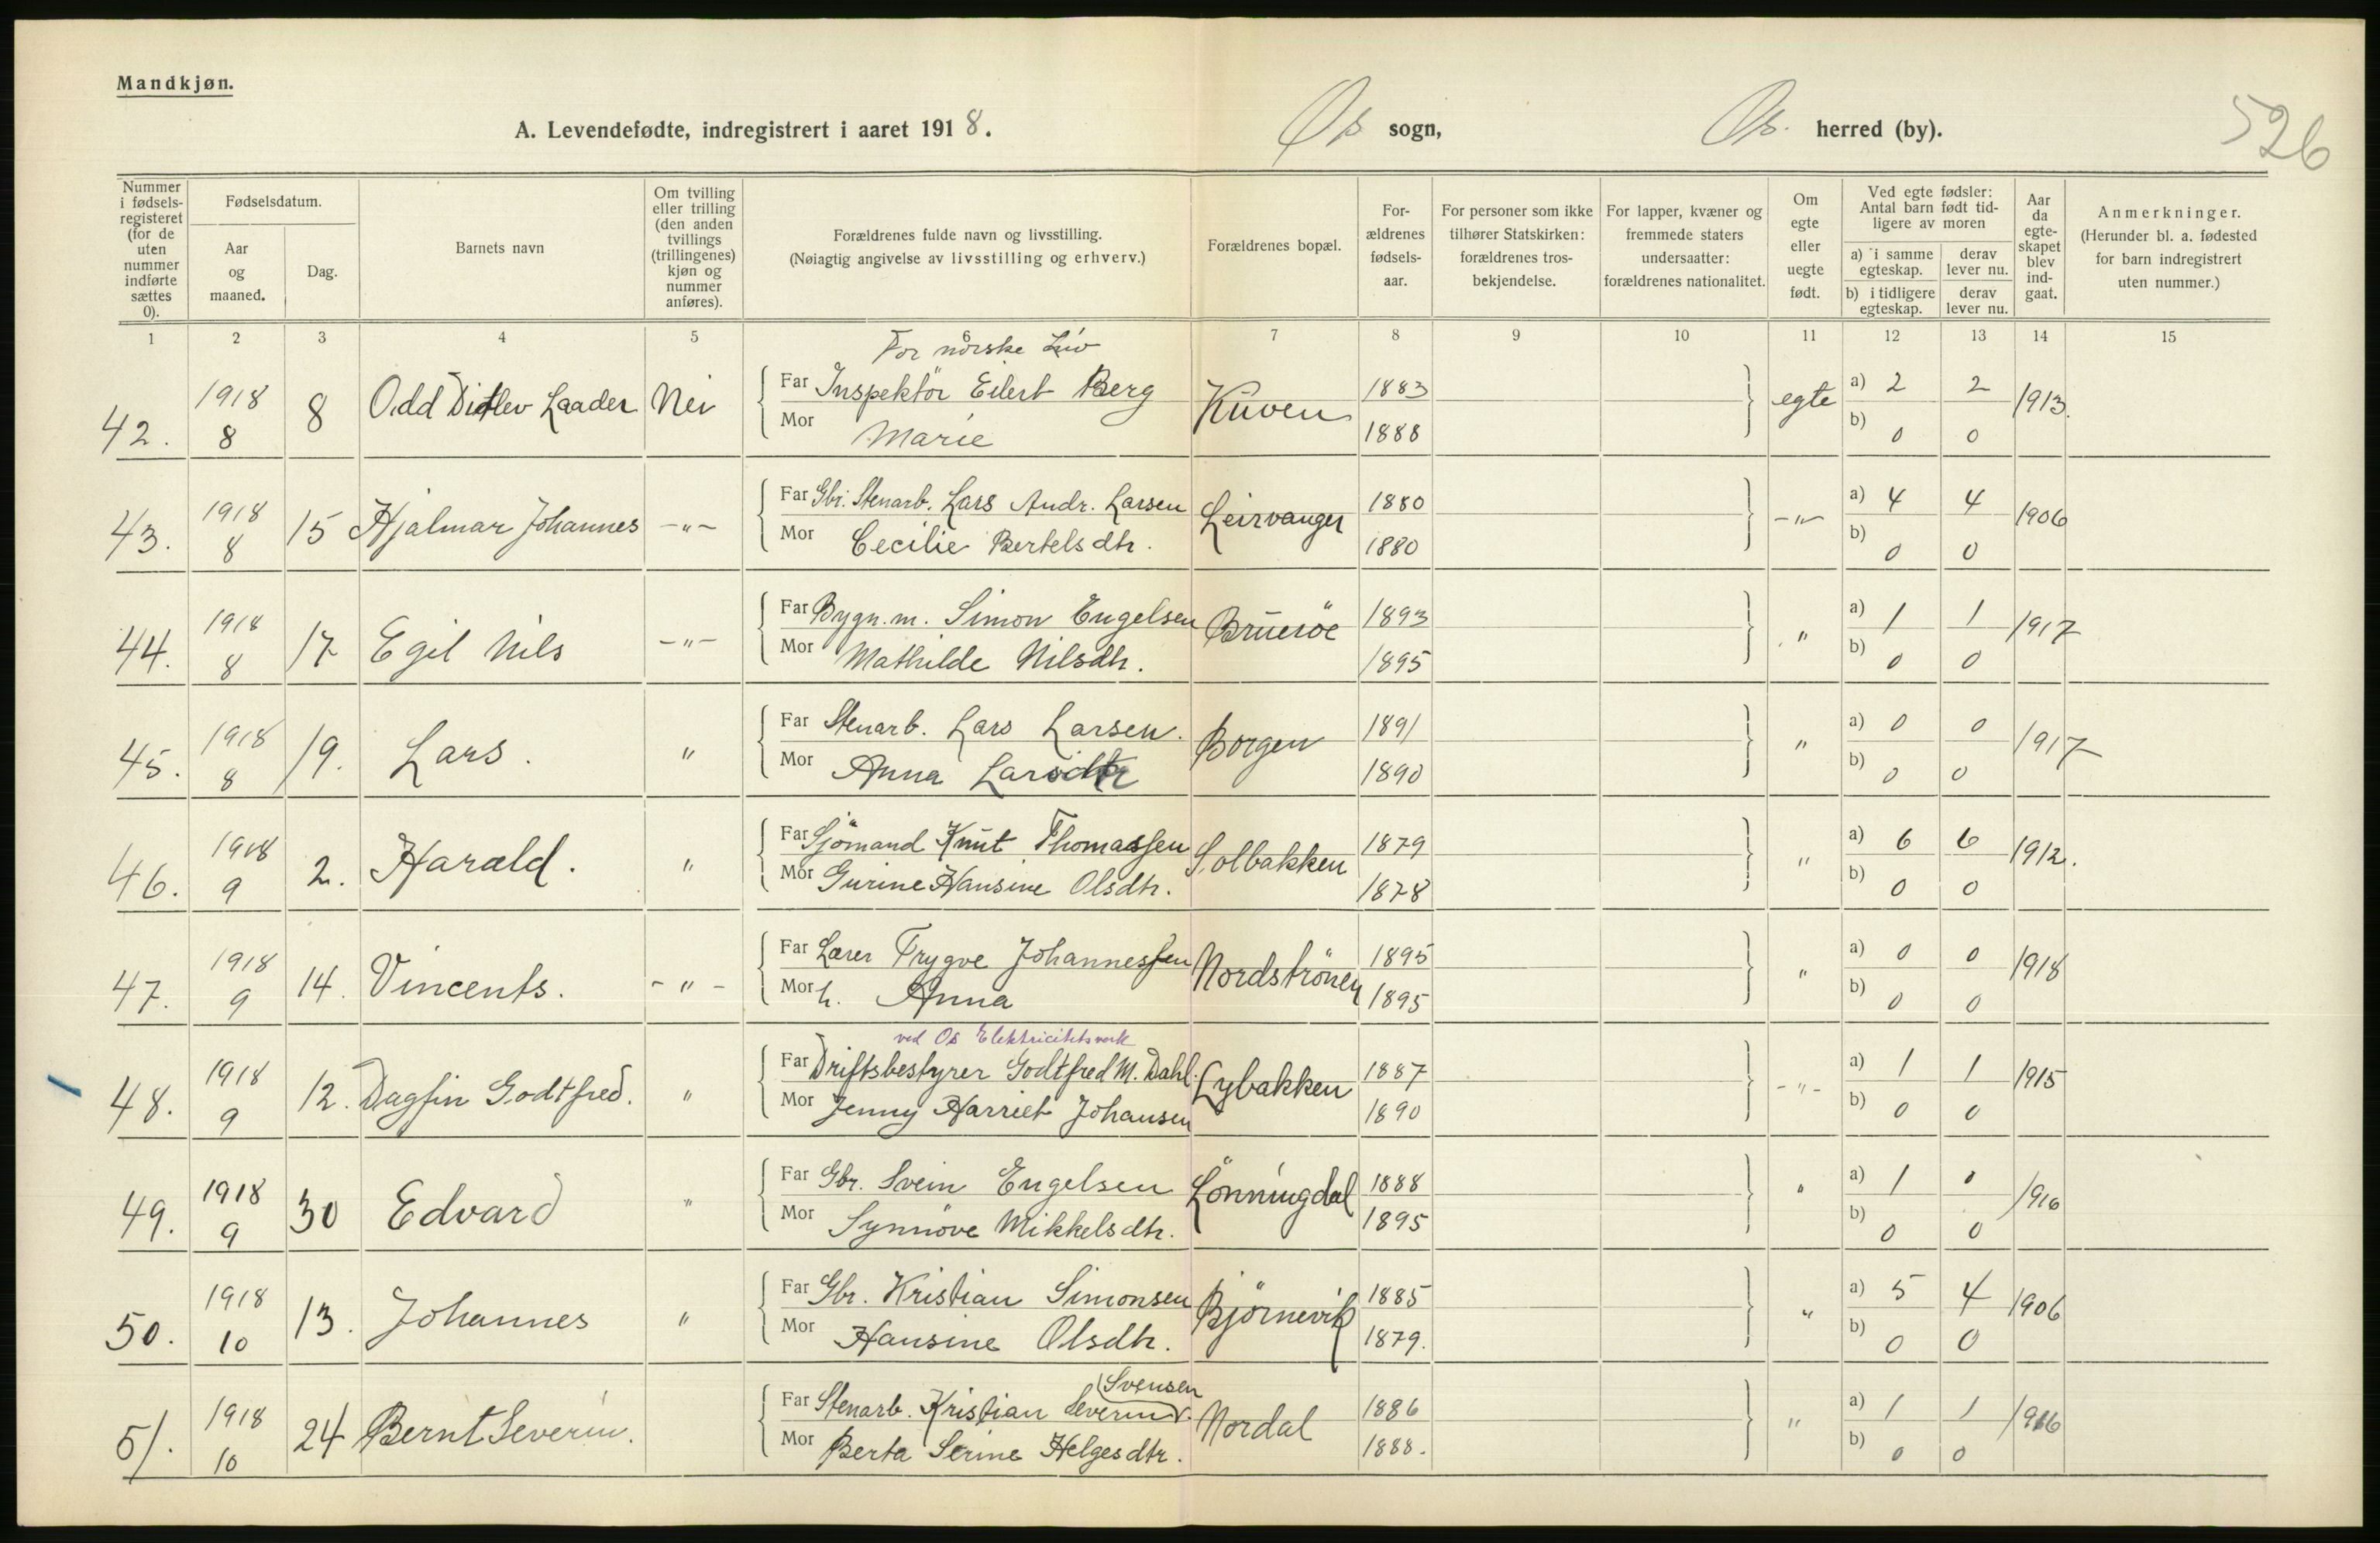 Mandkjøn.
A. Levendefødte, indregistrert i aaret 1918.
Os sogn,
Os. herred (by).
526
Nummer i fødsels-registeret (for de uten nummer indførte sættes 0).
Fødselsdatum.
Aar og maaned.
Dag.
Barnets navn
Om tvilling eller trilling (den anden tvillings (trillingenes) kjøn og nummer anføres).
Forældrenes fulde navn og livsstilling.
(Nøiagtig angivelse av livsstilling og erhverv.)
Forældrenes bopæl.
For-ældrenes fødsels-aar.
For personer som ikke tilhører Statskirken: forældrenes tros-bekjendelse.
For lapper, kvæner og fremmede staters undersaatter: forældrenes nationalitet.
Om egte eller uegte født.
Ved egte fødsler: Antal barn født tid-ligere av moren
a) i samme egteskap.
derav lever nu.
b) i tidligere egteskap.
derav lever nu.
Aar da egte-skapet blev ind-gaat.
Anmerkninger.
(Herunder bl. a. fødested for barn indregistrert uten nummer.)
1 2 3 4 5 7 8 9 10 11 12 13 14 15
For norske Liv
42. 1918 8 8 Odd Ditlev Laader Nei Far Inspektör Eilert Berg Kuven 1883 egte a) 2 2 1913.
Mor Marie 1888 b) 0 0
43. 1918 8 15 Hjalmar Johannes -"- Far Gbr. Stenarb. Lars Andr. Larsen Leirvanger 1880 -"- a) 4 4 1906
Mor Cecilie Bertelsdtr. 1880 b) 0 0
44. 1918 8 17 Egil Nils -"- Far Bygn.m. Simon Engelsen Brueröe 1893 " a) 1 1 1917
Mor Mathilde Nilsdtr. 1895 b) 0 0
45. 1918 8 19. Lars. " Far Stenarb. Lars Larsen. Borgen 1891 " a) 0 0 1917
Mor Anna Larsdtr 1890 b) 0 0
46. 1918 9 2. Harald. " Far Sjömand Knut Thomassen Solbakken 1879 " a) 6 6 1912.
Mor Gurine Hansine Olsdtr. 1878 b) 0 0
47. 1918 9 14. Vincents. -"- Far Lærer Trygve Johannessen Nordströnen 1895 " a) 0 0 1918
Mor h. Anna 1895 b) 0 0
ved Os Elektricitetsverk
48. 1918 9 12. Dagfin Godtfred. " Far Driftsbestyrer Godtfred M. Dahl. Lybakken 1887 -"- a) 1 1 1915
Mor Jenny Harriet Johansen 1890 b) 0 0
49. 1918 9 30 Edvard " Far Gbr. Svein Engelsen Lönningdal 1888 " a) 1 0 1916
Mor Synnöve Mikkelsdtr. 1895 b) 0 0
50. 1918 10 13. Johannes " Far Gbr. Kristian Simonsen Björnevik 1885 " a) 5 4 1906
Mor Hansine Olsdtr. 1879. b) 0 0
(Svensen
51. 1918 10 24 Bernt Severin. Far Stenarb. Kristian Severin Nordal 1886 " a) 1 1 1916
Mor Berta Serine Helgesdtr. 1888. b) 0 0